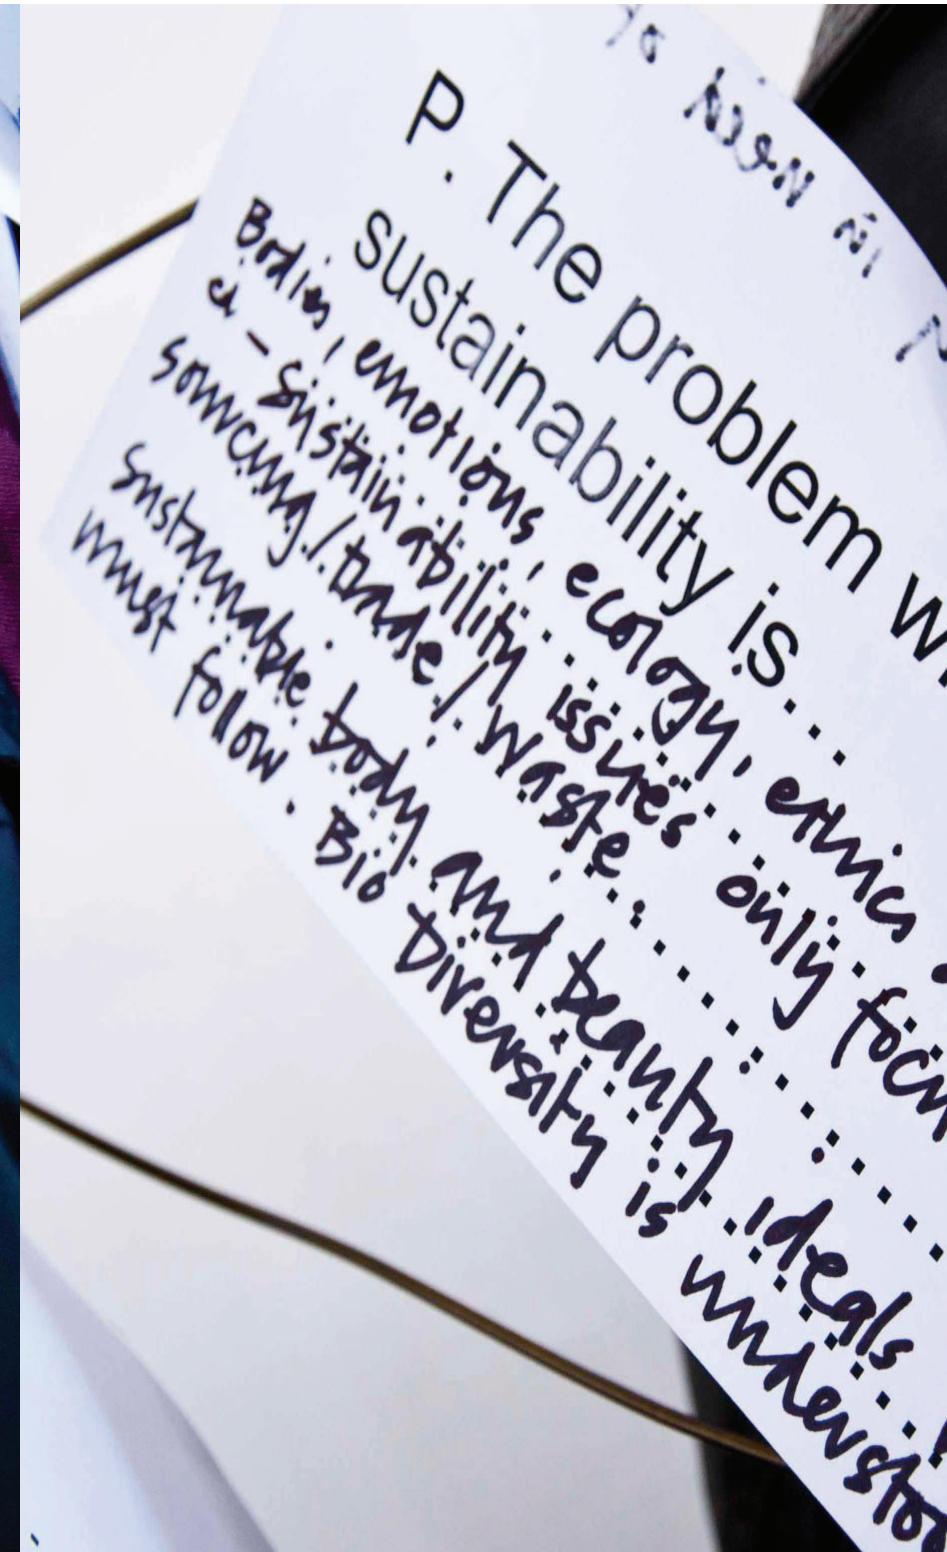 P. The problem w
sustainability is...
Bodies, emotions, ecology, ethics
- Sustainability issues only focu
sourcing/trade/waste
Sustainable body and beauty ideals
must follow. Bio Diversity is understoo